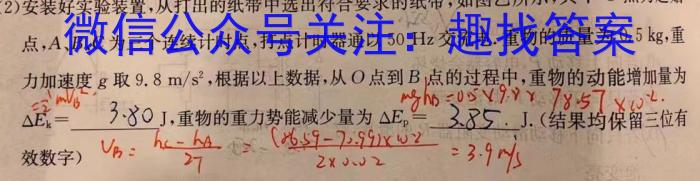 (2)安装好实验装置,从打出的纸带中选出符合要求的纸带,如图乙所示,
微信公众号关注：趣找答案
点,A、B、C为三个连续计时点,打点计时器通以50 Hz交流电,重物的质量为0.5 kg,重
力加速度 g 取 9.8 m/s²,根据以上数据,从 O 点到 B 点的过程中,重物的动能增加量为
mghB = 0.5×9.8×78.57×10⁻².
ΔEk= 3.80 J,重物的重力势能减少量为 ΔEp= 3.85 J.(结果均保留三位有
效数字) VB = (hC-hA)/2T = (86.59-70.99)×10⁻²/2×0.02 = 3.9 m/s